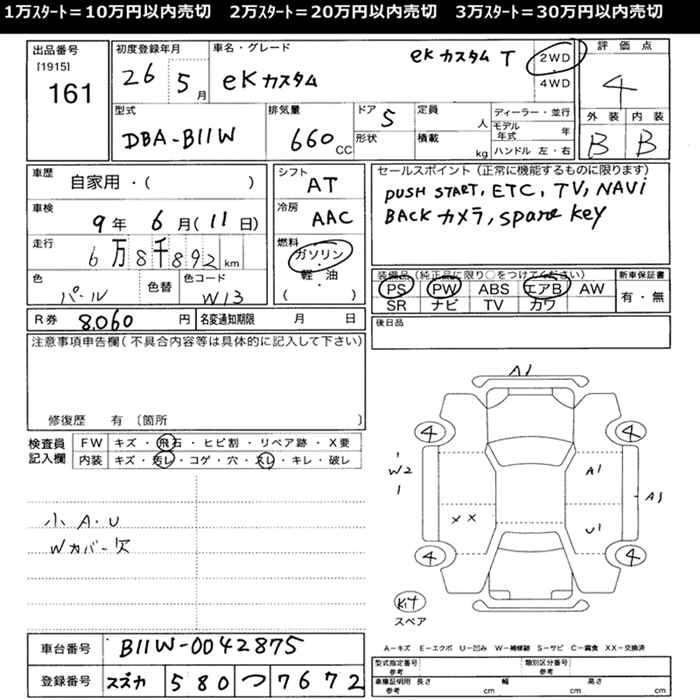 1万スタート=10万円以内売切　2万スタート=20万円以内売切　3万スタート=30万円以内売切
出品番号
[1915]
161
初度登録年月
26 5月
車名・グレード
eKカスタム
eKカスタム T
2WD
4WD
評価点
4
外装 内装
B B
型式
DBA-B11W
排気量
660 CC
ドア
5
形状
定員
人
積載
kg
ディーラー・並行
モデル年式 年
ハンドル 左・右
車歴
自家用・( )
車検
9年 6月(11日)
走行
6万8千892km
色
パール
色替
色コード
W13
シフト
AT
冷房
AAC
燃料
ガソリン
・
軽・油
( )
セールスポイント(正常に機能するものに限ります)
PUSH START, ETC, TV, NAVi
BACKカメラ, spare key
装備品(純正品に限り○をつけてください)
PS PW ABS エアB AW
SR ナビ TV カワ
新車保証書
有・無
R券 8,060円
名変通知期限 月 日
後日品
注意事項申告欄(不具合内容等は具体的に記入して下さい)
修復歴 有〔箇所
検査員
記入欄
FW キズ・飛石・ヒビ割・リペア跡・X要
内装 キズ・汚レ・コゲ・穴・スレ・キレ・破レ
小 A・U
Wカバー欠
A1
4 4
W2
A1
XX
U1
4 4
Kit
スペア
A-キズ E-エクボ U-凹み W-補修跡 S-サビ C-腐食 XX-交換済
車台番号 B11W-0042875
登録番号 スズカ 580 つ 7672
型式指定番号
参考
類別区分番号
参考
車庫証明用
参考
長さ cm 幅 cm 高さ cm